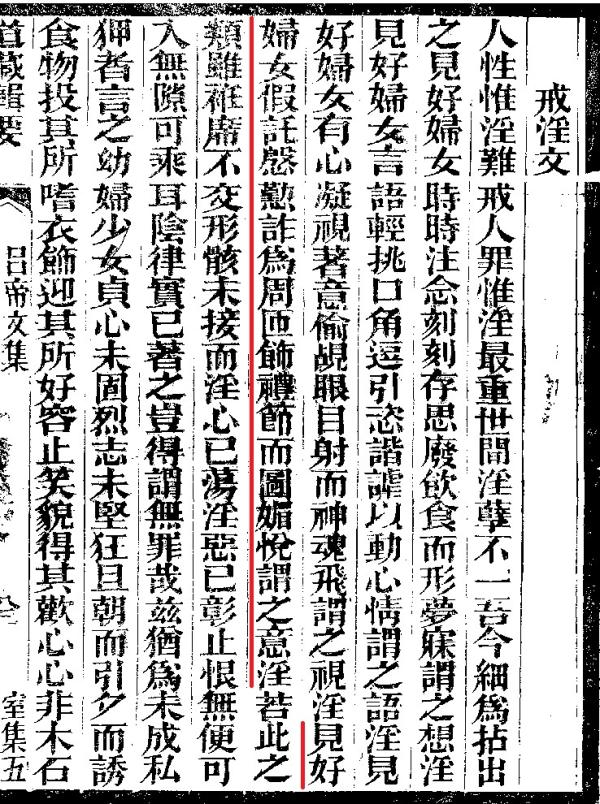 戒淫文
人性惟淫難戒人罪惟淫最重世間淫孽不一吾今細爲拈出
之見好婦女時時注念刻刻存思廢飲食而形夢寐謂之想淫
見好婦女言語輕挑口角逗引恣諧謔以動心情謂之語淫見
好婦女有心凝視著意偷覷眼目射而神魂飛謂之視淫見好
婦女假託慇懃詐爲周匝飾禮節而圖媚悅謂之意淫若此之
類雖袵席不交形骸未接而淫心已蕩淫惡已彰止恨無便可
入無隙可乘耳陰律實已著之豈得謂無罪哉茲猶爲未成私
狎者言之幼婦少女貞心未固烈志未堅狂旦朝而引夕而誘
食物投其所嗜衣飾迎其所好容止笑貌得其歡心心非木石
道藏輯要 呂帝文集 室集五